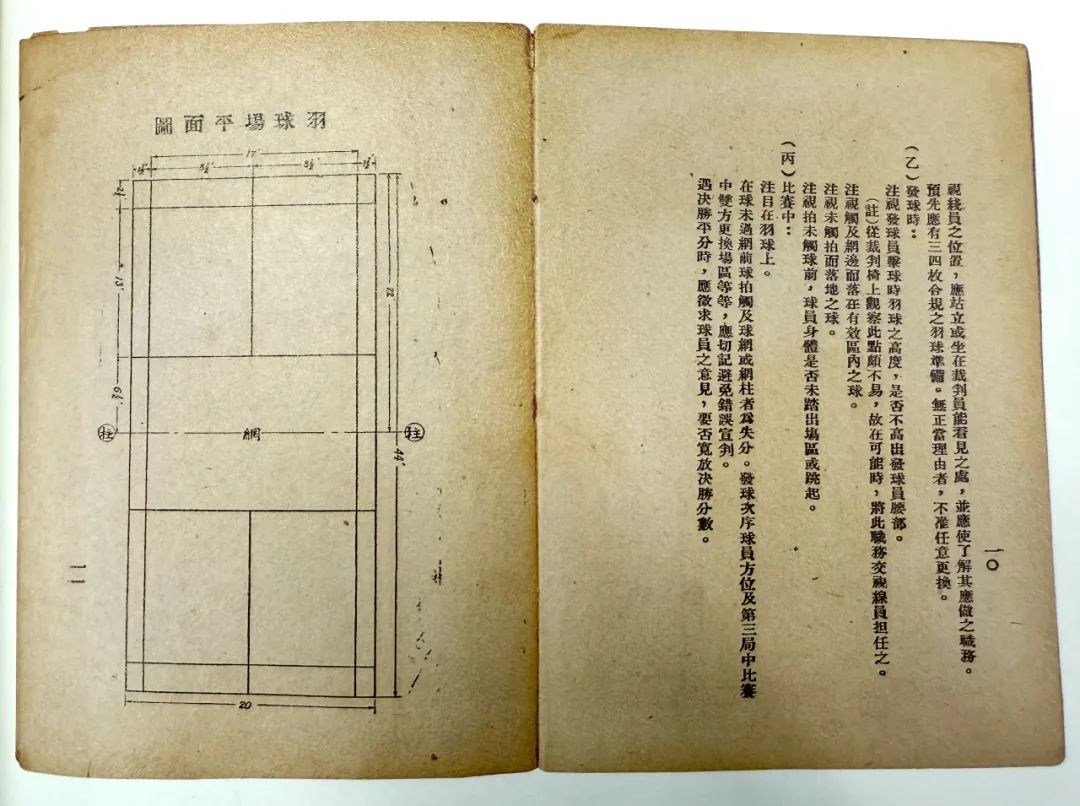 一〇
視綫員之位置，應站立或坐在裁判員能看見之處，並應使了解其應做之職務。
預先應有三四枚合規之羽球準備。無正當理由者，不准任意更換。
（乙）發球時：
注視發球員擊球時羽球之高度，是否不高出發球員腰部。
（註）從裁判椅上觀察此點頗不易，故在可能時，將此職務交視線員担任之。
注視觸及網邊而落在有效區內之球。
注視未觸拍而落地之球。
注視拍未觸球前，球員身體是否未踏出塲區或跳起。
（丙）比賽中：
注目在羽球上。
在球未過網前球拍觸及球網或網柱者爲失分。發球次序球員方位及第三局中比賽
中雙方更換場區等等，應切記避免錯誤宣判。
遇決勝平分時，應徵求球員之意見，要否寬放決勝分數。
羽球場平面圖
17′
1½′
8½′
8½′
1½′
2½′
13′
22′
6½′
柱
網
柱
44′
20
一一